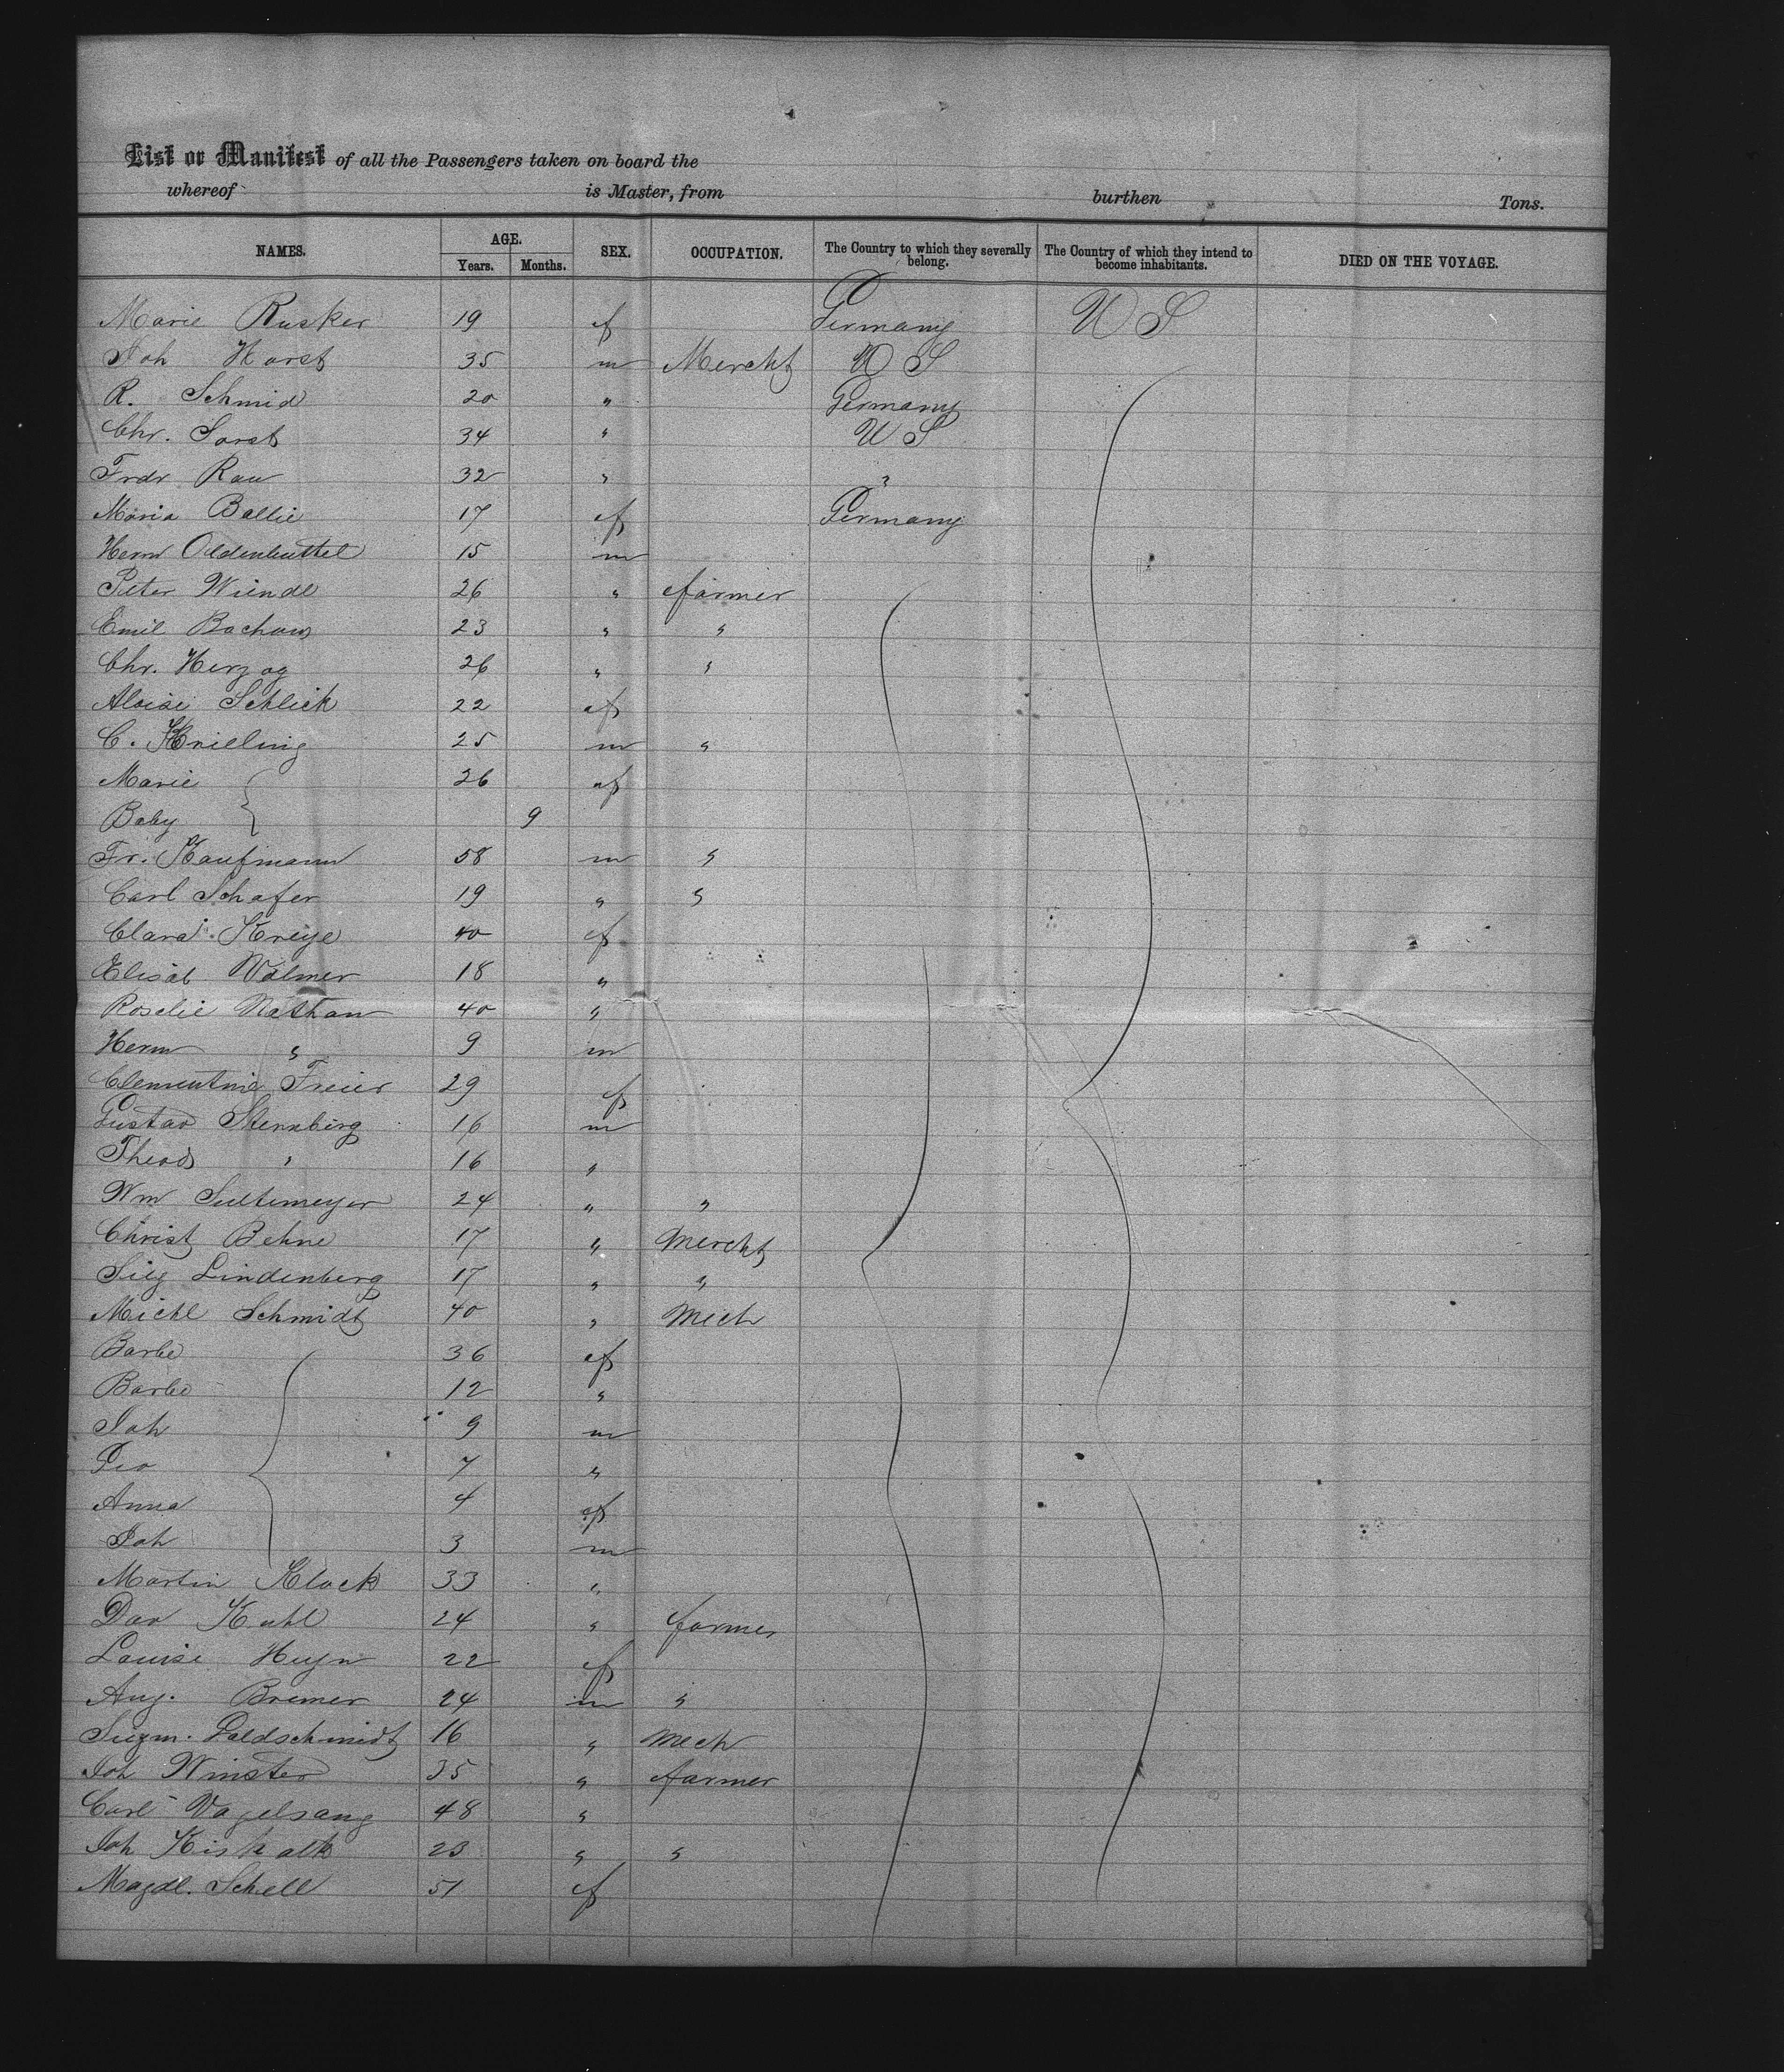 List or Manifest of all the Passengers taken on board the
whereof is Master, from burthen Tons.
NAMES. AGE. Years. Months. SEX. OCCUPATION. The Country to which they severally belong. The Country of which they intend to become inhabitants. DIED ON THE VOYAGE.
Marie Rusker 19 f Germany U S
Joh Horst 35 m Mercht U S
R. Schmid 20 " Germany
Chr. Sorst 34 " U S
Frdr Rau 32 " "
Maria Ballie 17 f Germany
Herm Oldenbuttel 15 m
Peter Wiende 26 " farmer
Emil Bachaus 23 " "
Chr. Herzog 26 " "
Aloise Schlick 22 f
C. Knieling 25 m "
Marie 26 f
Baby 9
Fr. Kaufmann 58 m "
Carl Schafer 19 " "
Clara Kreye 40 f
Elisab Volmer 18 "
Rosalie Nathan 40 "
Herm " 9 m
Clementine Freier 29 f
Gustav Sternberg 16 m
Theod " 16 "
Wm Sultemeyer 24 " "
Christ Behne 17 " Mercht
Sieg Lindenberg 17 " "
Michl Schmidt 40 " Mech
Barbe 36 f
Barbe 12 "
Joh 9 m
Geo 7 "
Anna 4 f
Joh 3 m
Martin Klock 33 "
Dav Kuhl 24 " farmer
Louise Heyn 22 f
Aug. Bremer 24 m "
Siegm. Goldschmidt 16 " Mech
Joh Winster 35 " farmer
Carl Vogelsang 48 "
Joh Kiskalk 23 " "
Magdl. Schell 51 f